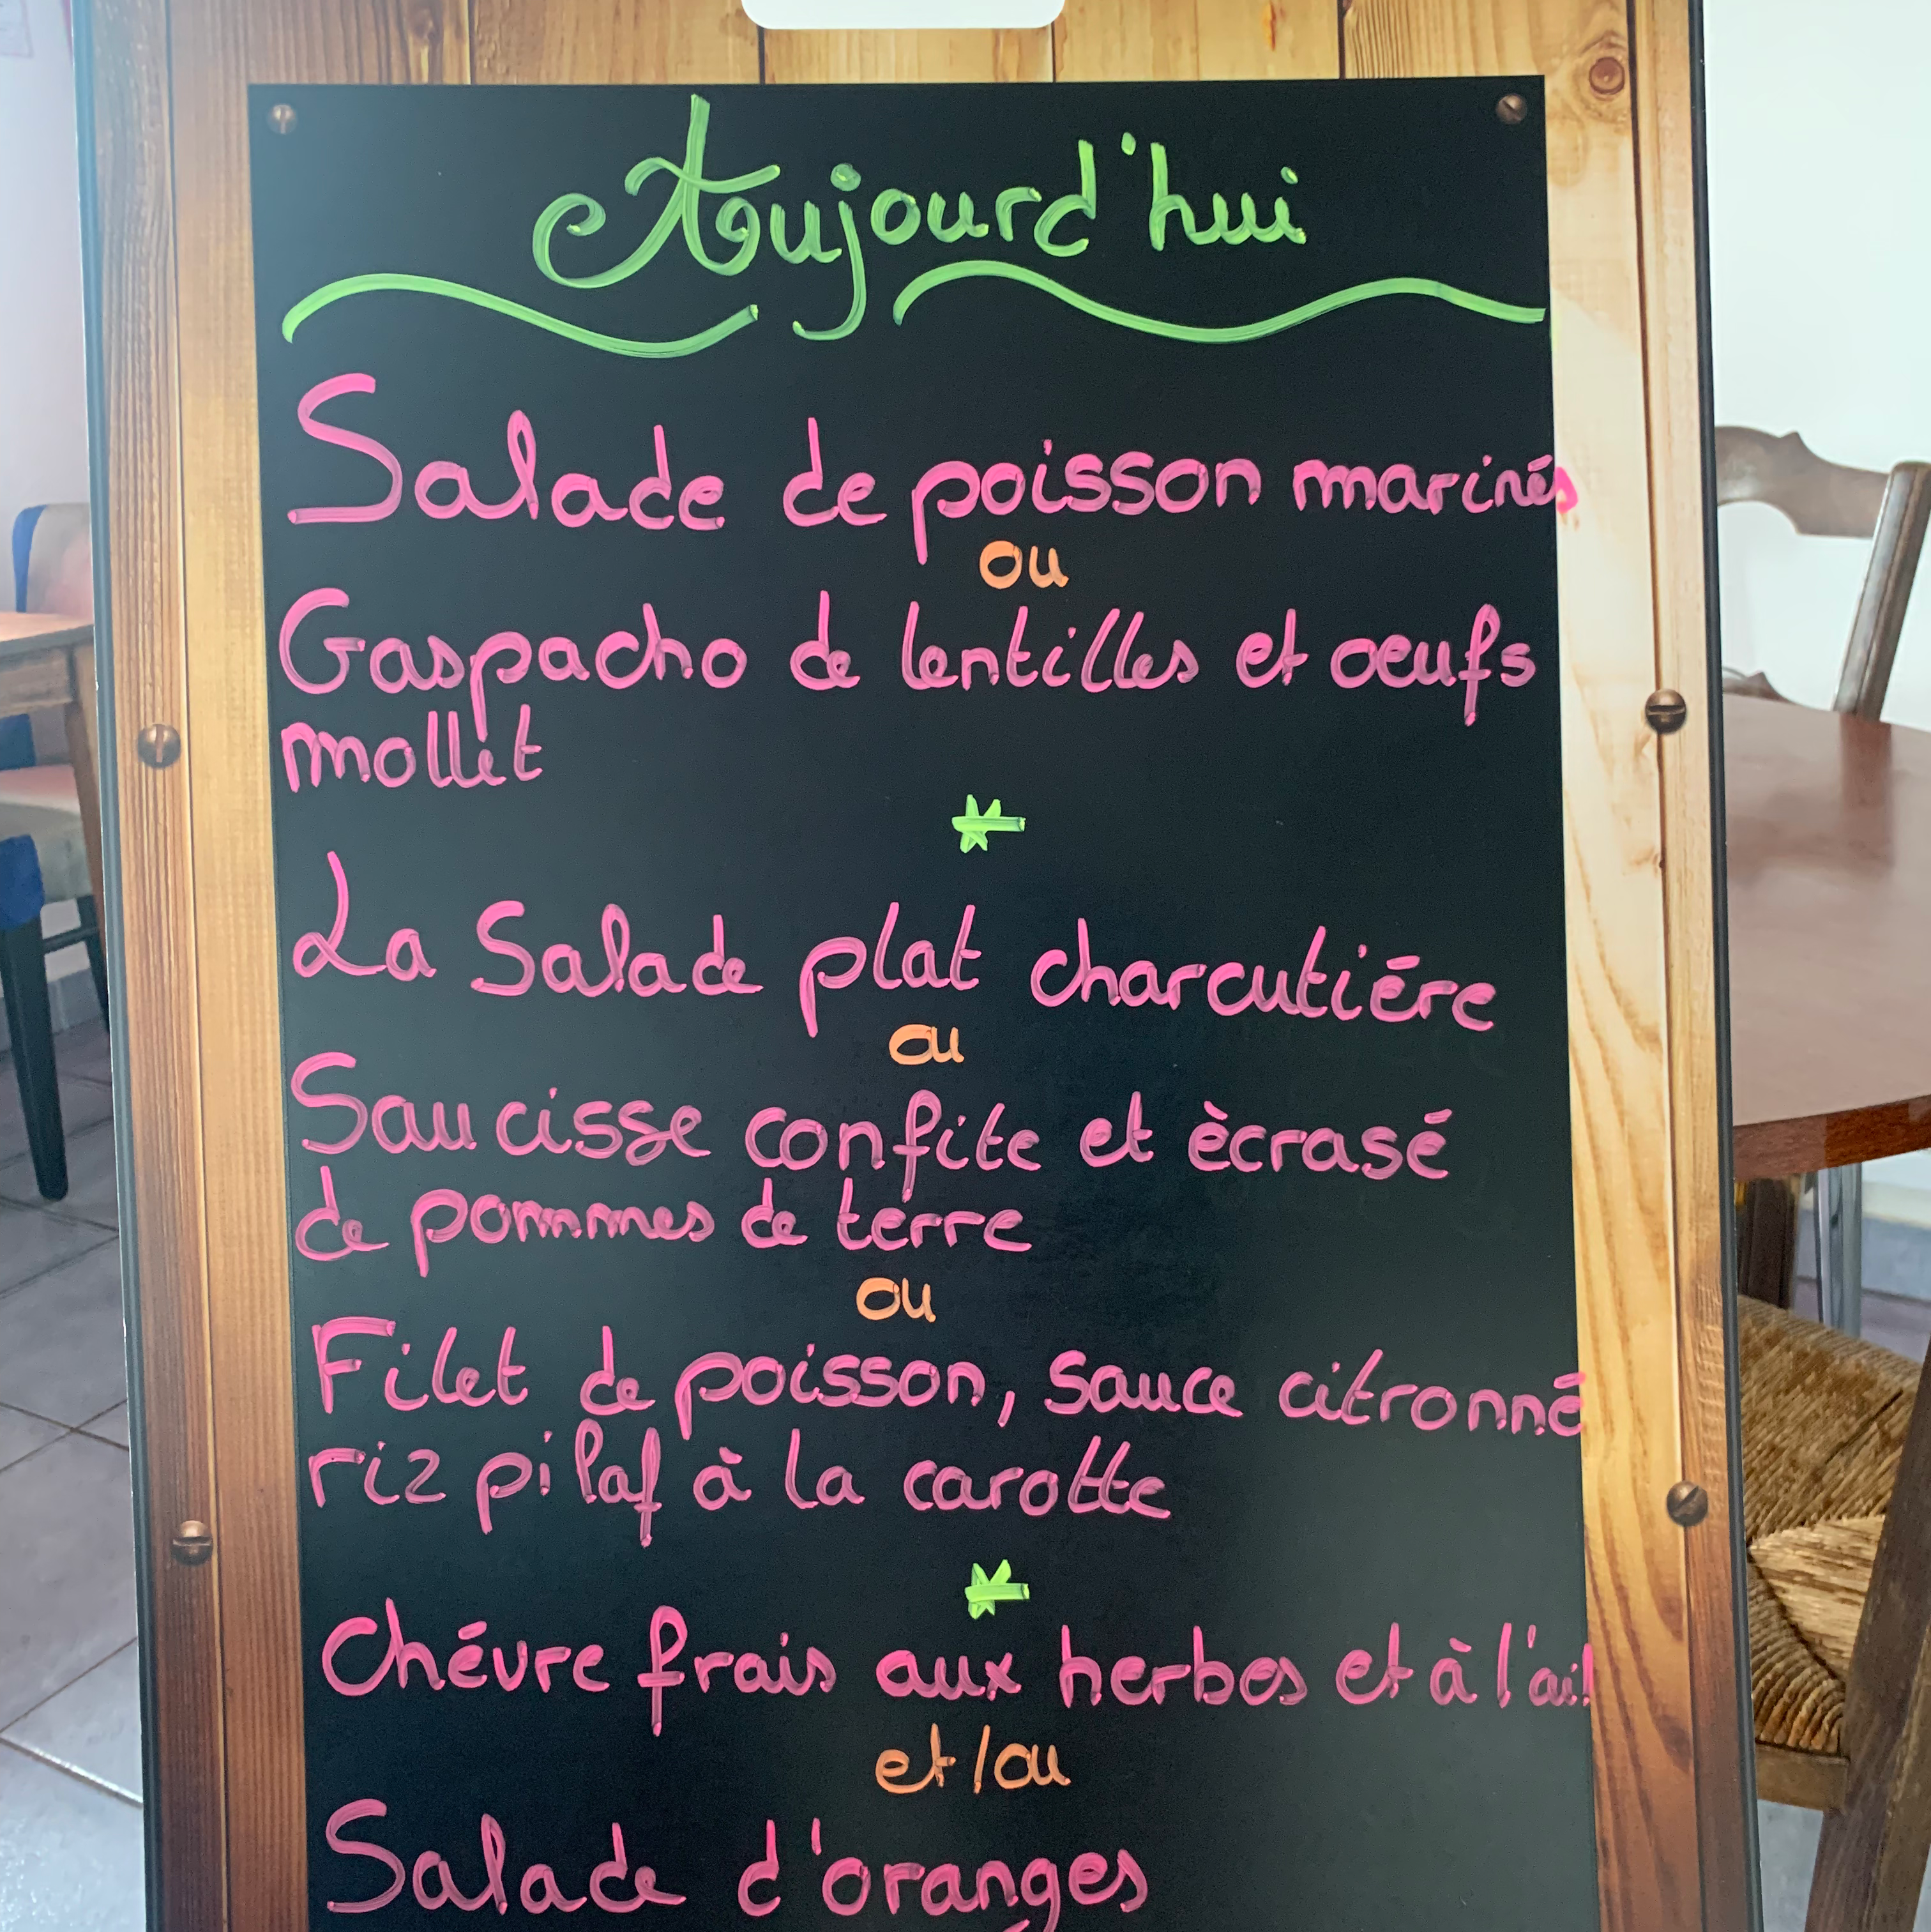 Aujourd'hui
Salade de poisson marinés
ou
Gaspacho de lentilles et oeufs
mollet
La Salade plat charcutiére
ou
Saucisse confite et ècrasé
de pommes de terre
ou
Filet de poisson, sauce citronné
riz pilaf à la carotte
Chévre frais aux herbes et à l'ail
et/ou
Salade d'oranges